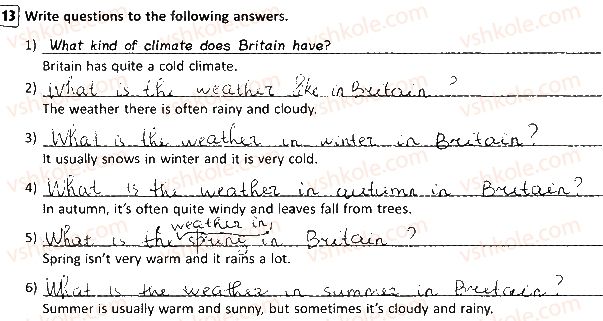 13 Write questions to the following answers.
1) What kind of climate does Britain have?
Britain has quite a cold climate.
2) What is the weather like in Britain ?
The weather there is often rainy and cloudy.
3) What is the weather in winter in Britain?
It usually snows in winter and it is very cold.
4) What is the weather in autumn in Britain?
In autumn, it's often quite windy and leaves fall from trees.
weather in
5) What is the spring in Britain?
Spring isn't very warm and it rains a lot.
6) What is the weather in summer in Britain?
Summer is usually warm and sunny, but sometimes it's cloudy and rainy.